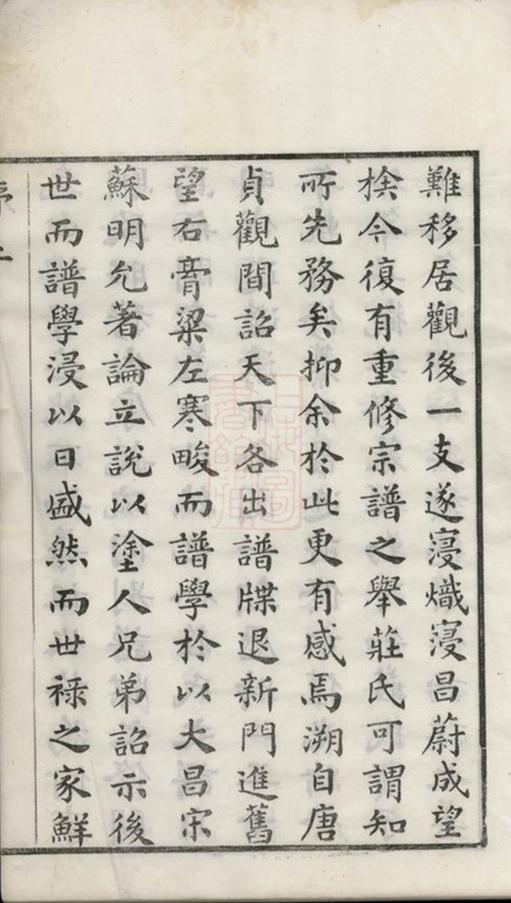 難移居觀後一支遂寖熾寖昌蔚成望
族今復有重修宗譜之舉莊氏可謂知
所先務矣抑余於此更有感焉溯自唐
貞觀間詔天下各出譜牒退新門進舊
望右膏粱左寒畯而譜學於以大昌宋
蘇明允著論立說以塗人兄弟詔示後
世而譜學浸以日盛然而世祿之家鮮
序